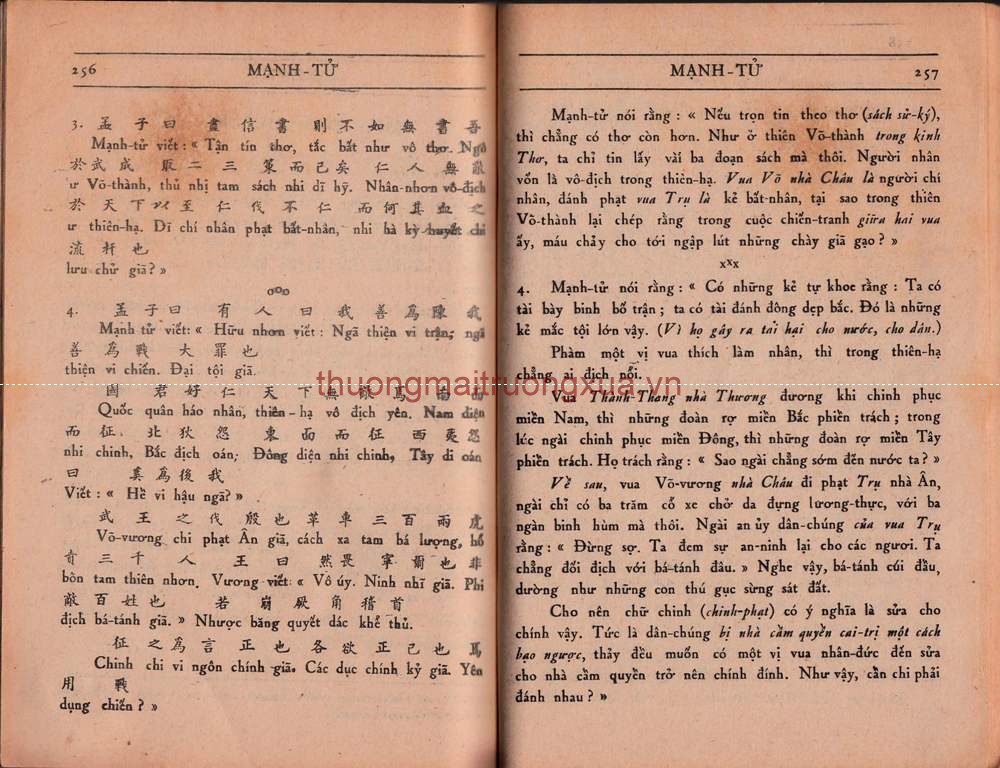 256 MẠNH-TỬ
3. 孟子曰盡信書則不如無書吾
Mạnh-tử viết : « Tận tín thơ, tắc bất như vô thơ. Ngô
於武成取二三策而已矣仁人無敵
ư Võ-thành, thủ nhị tam sách nhi dĩ hỹ. Nhân-nhơn vô-địch
於天下以至仁伐不仁而何其血之
ư thiên-hạ. Dĩ chí nhân phạt bất-nhân, nhi hà kỳ huyết chi
流杵也
lưu chử giã ? »
4. 孟子曰有人曰我善為陳我
Mạnh tử viết : « Hữu nhơn viết : Ngã thiện vi trận; ngã
善為戰大罪也
thiện vi chiến. Đại tội giã.
國君好仁天下無敵焉南面
Quốc quân háo nhân, thiên-hạ vô địch yên. Nam diện
而征北狄怨東面而征西夷怨
nhi chinh, Bắc địch oán; Đông diện nhi chinh, Tây di oán
曰奚為後我
Viết : « Hề vi hậu ngã? »
武王之伐殷也革車三百兩虎
Võ-vương chi phạt Ân giã, cách xa tam bá lượng, hổ
賁三千人王曰無畏寧爾也非
bôn tam thiên nhơn. Vương viết: « Vô úy. Ninh nhĩ giã. Phi
敵百姓也若崩厥角稽首
địch bá-tánh giã. » Nhược băng quyết dác khể thủ.
征之為言正也各欲正己也焉
Chinh chi vi ngôn chính giã. Các dục chính kỷ giã. Yên
用戰
dụng chiến ? »
MẠNH-TỬ 257
Mạnh-tử nói rằng : « Nếu trọn tin theo thơ (sách sử-ký),
thì chẳng có thơ còn hơn. Như ở thiên Võ-thành trong kinh
Thơ, ta chỉ tin lấy vài ba đoạn sách mà thôi. Người nhân
vốn là vô-địch trong thiên-hạ. Vua Võ nhà Châu là người chí
nhân, đánh phạt vua Trụ là kẻ bất-nhân, tại sao trong thiên
Võ-thành lại chép rằng trong cuộc chiến-tranh giữa hai vua
ấy, máu chảy cho tới ngập lút những chày giã gạo ? »
xxx
4. Mạnh-tử nói rằng : « Có những kẻ tự khoe rằng : Ta có
tài bày binh bố trận ; ta có tài đánh đông dẹp bắc. Đó là những
kẻ mắc tội lớn vậy. (Vì họ gây ra tai hại cho nước, cho dân.)
Phàm một vị vua thích làm nhân, thì trong thiên-hạ
chẳng ai địch nổi.
thuongmaitruongxua.vn
Vua Thành-Thang nhà Thương đương khi chinh phục
miền Nam, thì những đoàn rợ miền Bắc phiền trách ; trong
lúc ngài chinh phục miền Đông, thì những đoàn rợ miền Tây
phiền trách. Họ trách rằng : « Sao ngài chẳng sớm đến nước ta ? »
Về sau, vua Võ-vương nhà Châu đi phạt Trụ nhà Ân,
ngài chỉ có ba trăm cỗ xe chở da đựng lương-thực, với ba
ngàn binh hùm mà thôi. Ngài an ủy dân-chúng của vua Trụ
rằng : « Đừng sợ. Ta đem sự an-ninh lại cho các ngươi. Ta
chẳng đối địch với bá-tánh đâu. » Nghe vậy, bá-tánh cúi đầu,
dường như những con thú gục sừng sát đất.
Cho nên chữ chinh (chinh-phạt) có ý nghĩa là sửa cho
chính vậy. Tức là dân-chúng bị nhà cầm quyền cai-trị một cách
bạo ngược, thảy đều muốn có một vị vua nhân-đức đến sửa
cho nhà cầm quyền trở nên chính đính. Như vậy, cần chi phải
đánh nhau ? »